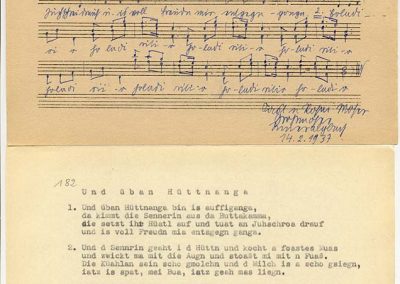 Juhschra drauf u. is voll Freude mir entgegn ganga 2. holadi
ri - o ho-ladi rili-o ho-ladi rili-o holadi-o
holadi rili-o ho-ladi rili-o ho-ladi rili-o holadi-o
14.2.1937
182
Und üban Hüttnanga
1. Und üban Hüttnanga bin is auffiganga,
da kimmt die Sennerin aus da Buttakamma,
die setzt ihr Hüatl auf und tuat an Juhschroa drauf
und is voll Freudn mia entagegn ganga.
2. Und d Sennrin geaht i d Hüttn und kocht a feastes Muas
und zwickt ma mit die Augn und stoaßt mi mit n Fuaß.
Die Küahlan sein scho gmolchn und d Milch is a scho gsiegn,
iatz is spat, mei Bua, iatz geah mas liegn.